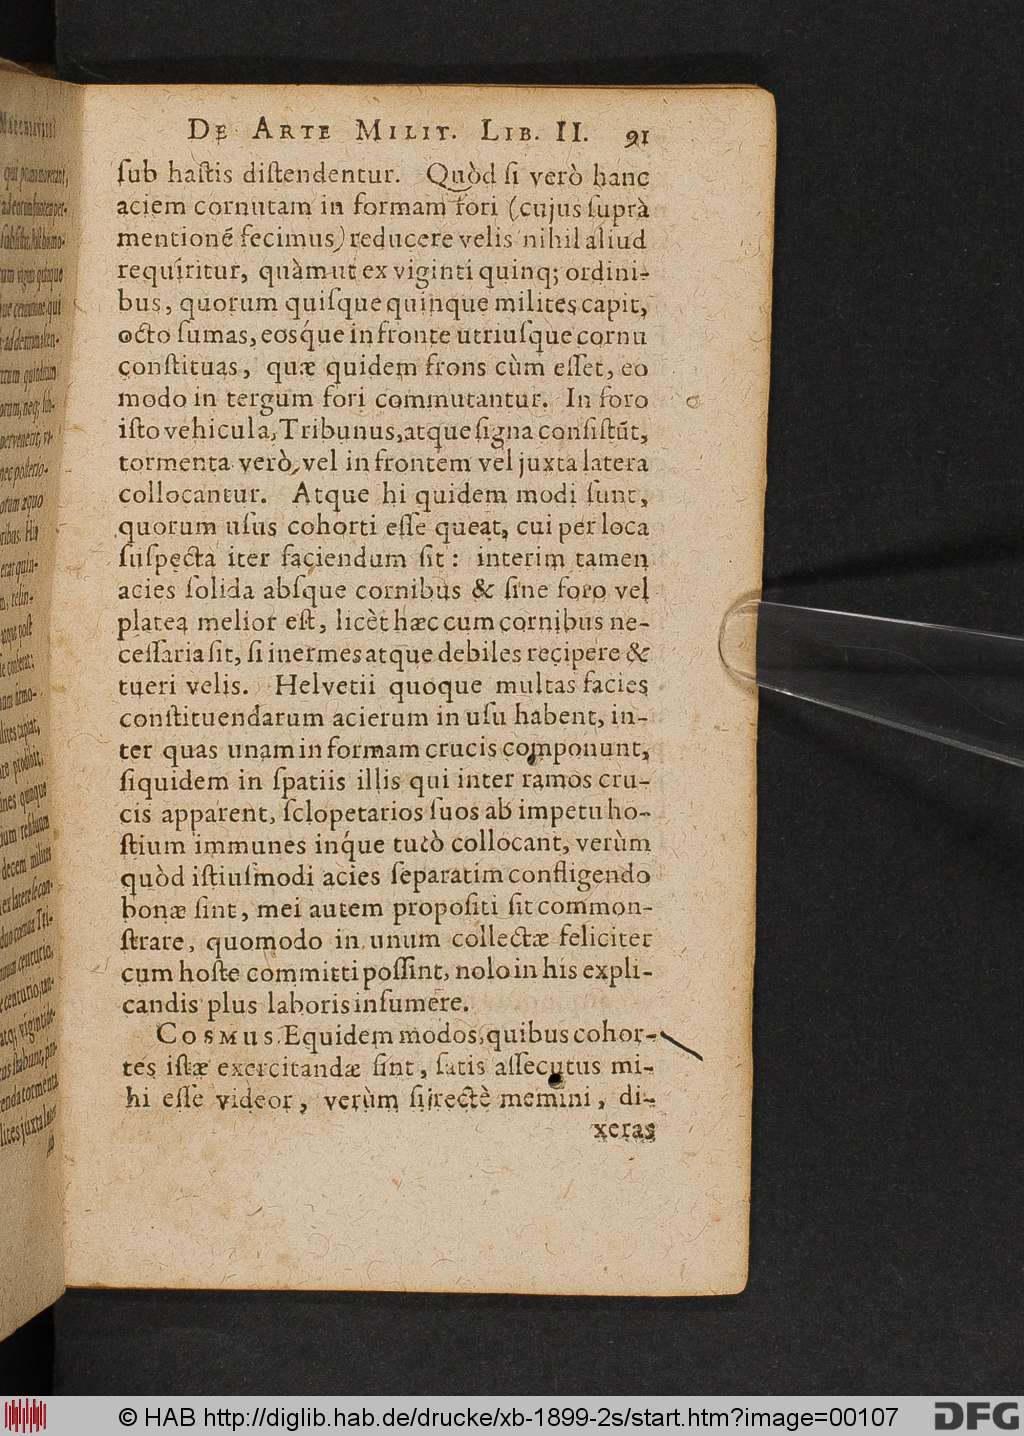 DE ARTE MILIT. LIB. II. 91
ſub haſtis diſtendentur. Quòd ſi verò hanc
aciem cornutam in formam fori (cujus ſuprà
mentionē fecimus) reducere velis nihil aliud
requiritur, quàm ut ex viginti quinq; ordini-
bus, quorum quiſque quinque milites capit,
octo ſumas, eosq́ue in fronte utriuſque cornu
conſtituas, quæ quidem frons cùm eſſet, eo
modo in tergum fori commutantur. In foro
iſto vehicula, Tribunus, atque ſigna conſiſtūt,
tormenta verò, vel in frontem vel juxta latera
collocantur. Atque hi quidem modi ſunt,
quorum uſus cohorti eſſe queat, cui per loca
ſuſpecta iter faciendum ſit: interim tamen
acies ſolida abſque cornibus & ſine foro vel
platea melior eſt, licèt hæc cum cornibus ne-
ceſſaria ſit, ſi inermes atque debiles recipere &
tueri velis. Helvetii quoque multas facies
conſtituendarum acierum in uſu habent, in-
ter quas unam in formam crucis componunt,
ſiquidem in ſpatiis illis qui inter ramos cru-
cis apparent, ſclopetarios ſuos ab impetu ho-
ſtium immunes inq́ue tutò collocant, verùm
quòd iſtiuſmodi acies ſeparatim confligendo
bonæ ſint, mei autem propoſiti ſit common-
ſtrare, quomodo in unum collectæ feliciter
cum hoſte committi poſſint, nolo in his expli-
candis plus laboris inſumere.
COSMUS. Equidem modos, quibus cohor-
tes iſtæ exercitandæ ſint, ſatis aſſecutus mi-
hi eſſe videor, verùm ſi rectè memini, di-
xeras
© HAB http://diglib.hab.de/drucke/xb-1899-2s/start.htm?image=00107
DFG